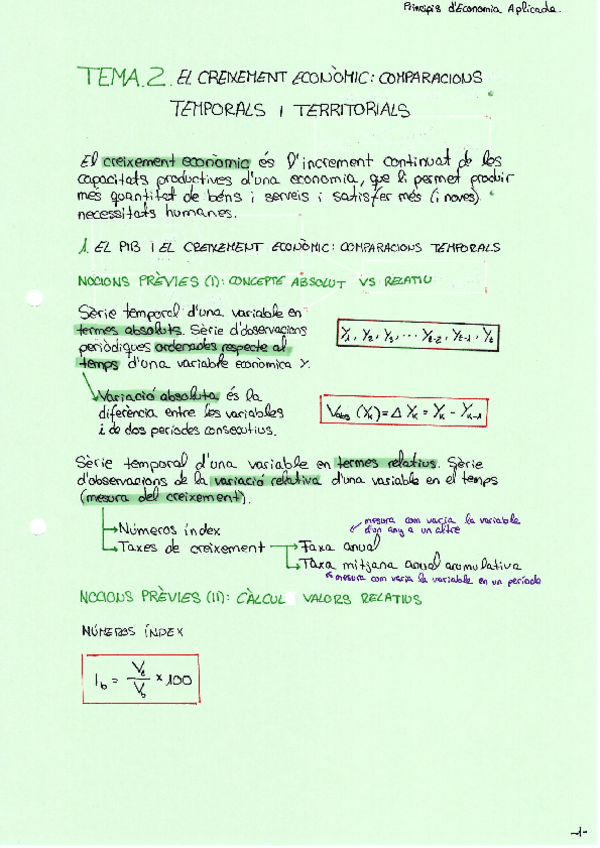 Principis d'Economia Aplicada.
TEMA.2. EL CREIXEMENT ECONÒMIC: COMPARACIONS
TEMPORALS I TERRITORIALS
El creixement econòmic és l'increment continuat de les
capacitats productives d'una economia, que li permet produir
més quantitat de béns i serveis i satisfer més (i noves)
necessitats humanes.
1. EL PIB I EL CREIXEMENT ECONÒMIC: COMPARACIONS TEMPORALS
NOCIONS PRÈVIES (I): CONCEPTE ABSOLUT VS RELATIU
Sèrie temporal d'una variable en
termes absoluts. Sèrie d'observacions
periòdiques ordenades respecte al
temps d'una variable econòmica Y.
Y₁, Y₂, Y₃, ... Yₜ₋₂, Yₜ₋₁, Yₜ
Variació absoluta és la
diferència entre les variables
i de dos períodes consecutius.
Vabs (Yₖ) = Δ Yₖ = Yₖ - Yₖ₋₁
Sèrie temporal d'una variable en termes relatius. Sèrie
d'observacions de la variació relativa d'una variable en el temps
(mesura del creixement).
Números índex
Taxes de creixement
mesura com varia la variable
d'un any a un altre
Taxa anual
Taxa mitjana anual acumulativa
mesura com varia la variable en un període
NOCIONS PRÈVIES (II): CÀLCUL VALORS RELATIUS
NÚMEROS ÍNDEX
I_b = Vₜ/V_b × 100
-1-